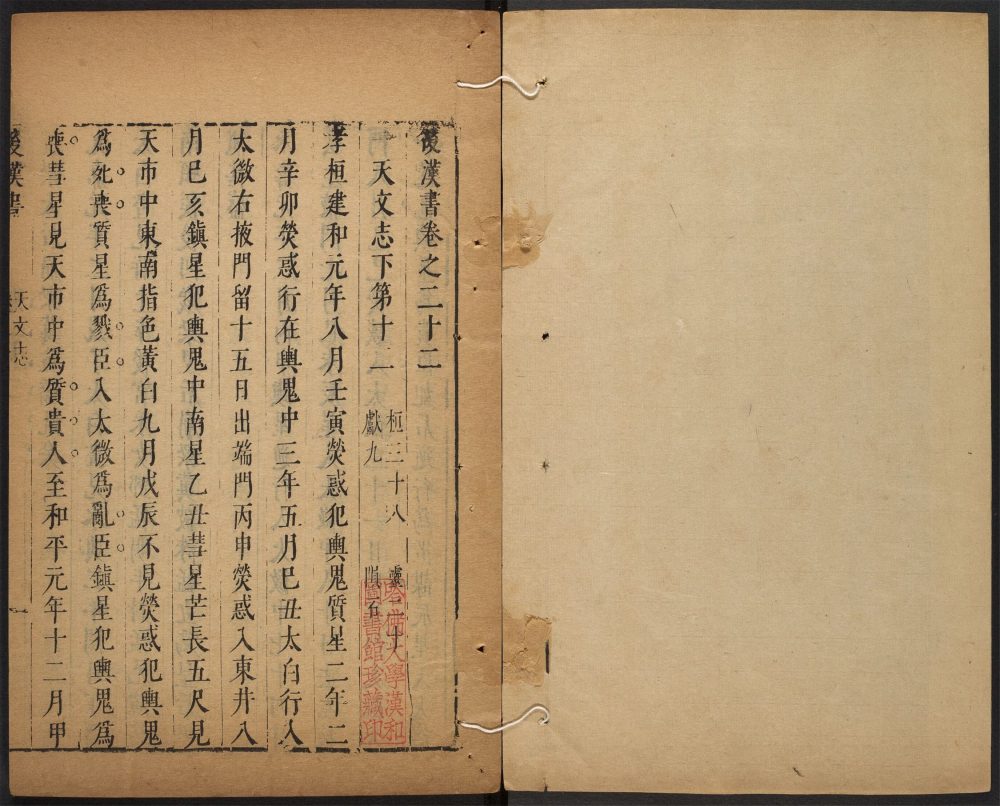 後漢書卷之二十二
天文志下第十二 桓三十八 靈二十 獻九 隕石
孝桓建和元年八月壬寅熒惑犯輿鬼質星二年二
月辛卯熒惑行在輿鬼中三年五月己丑太白行入
太微右掖門留十五日出端門丙申熒惑入東井八
月巳亥鎮星犯輿鬼中南星乙丑彗星芒長五尺見
天市中東南指色黃白九月戊辰不見熒惑犯輿鬼
為死喪質星為戮臣入太微為亂臣鎮星犯輿鬼為
喪彗星見天市中為質貴人至和平元年十二月甲
後漢書 天文志
哈佛大學漢和
圖書館珍藏印